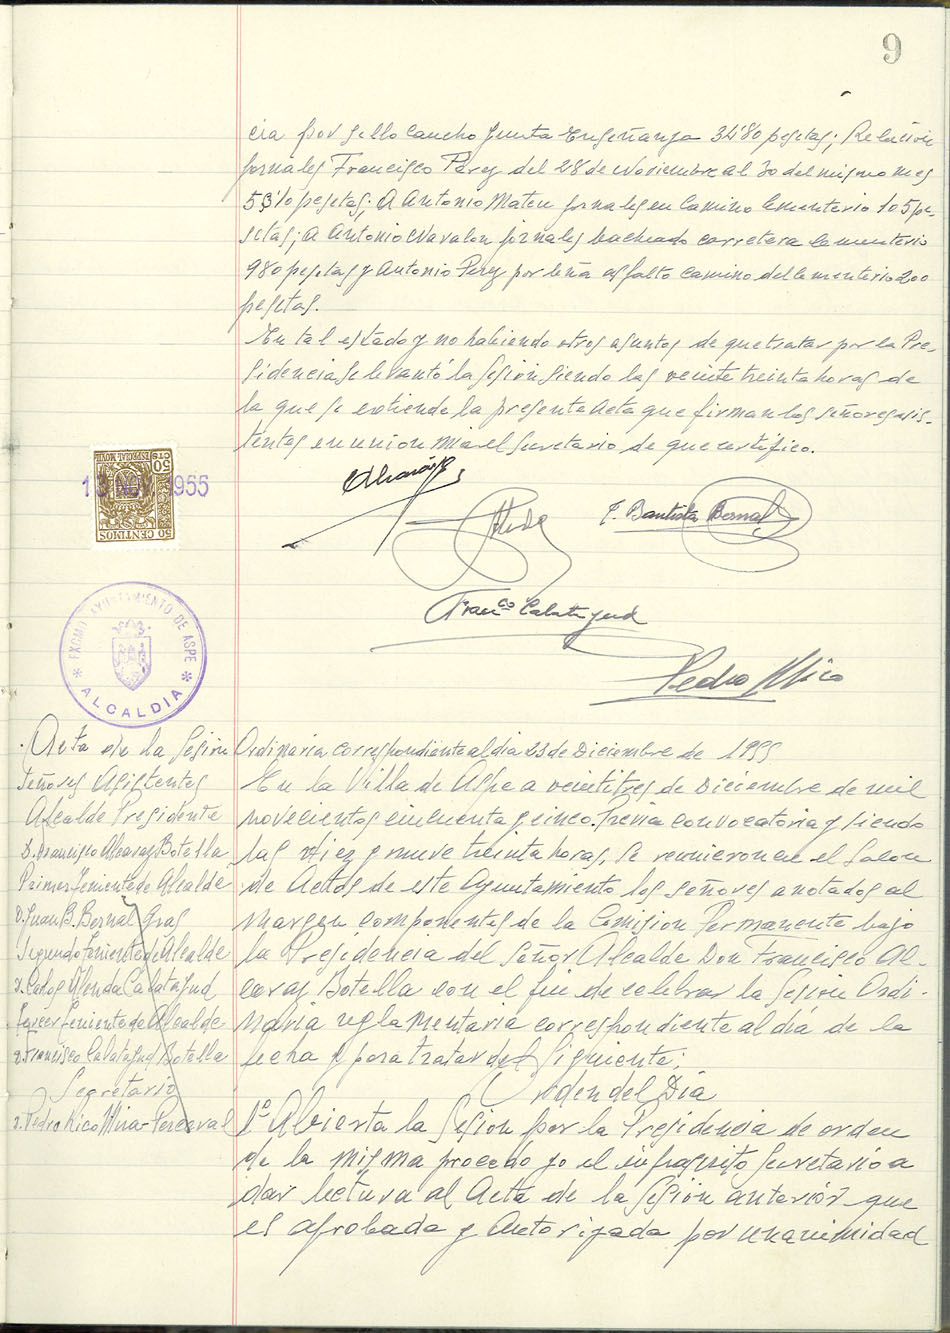 9
cia por sello caucho Junta Enseñanza 34'80 pesetas; Relación
jornales Francisco Pérez del 28 de Noviembre al 30 del mismo mes
53'10 pesetas; A Antonio Mateu jornales en Camino Cementerio 105 pe-
setas; a Antonio Navalon jornales bacheado carretera Cementerio
980 pesetas y Antonio Perez por leña asfalto camino del Cementerio 200
pesetas.
En tal estado y no habiendo otros asuntos de que tratar por la Pre-
sidencia se levantó la sesión siendo las veinte treinta horas de
la que se extiende la presente Acta que firman los señores asis-
tentes en union mia el Secretario de que certifico.
50 CTS
ESPECIAL MOVIL
50 CENTIMOS
1955
Alcaraz
F. Bautista Bernal
Franco Calatayud
Pedro Rico
EXCMO. AYUNTAMIENTO DE ASPE
* ALCALDIA *
Acta de la Sesión Ordinaria correspondiente al dia 23 de Diciembre de 1955
Señores Asistentes
Alcalde Presidente
D. Francisco Alcaraz Botella
Primer Teniente de Alcalde
D. Juan B. Bernal Gras
Segundo Teniente de Alcalde
D. Carlos Alenda Calatayud
Tercer Teniente de Alcalde
D. Francisco Calatayud Botella
Secretario
D. Pedro Rico Mira-Perceval
En la Villa de Aspe a veintitres de Diciembre de mil
novecientos cincuenta y cinco. Previa convocatoria y siendo
las diez y nueve treinta horas, se reunieron en el Salon
de Actos de este Ayuntamiento los señores anotados al
margen componentes de la Comision Permanente bajo
la Presidencia del Señor Alcalde Don Francisco Al-
caraz Botella con el fin de celebrar la Sesión Ordi-
naria reglamentaria correspondiente al día de la
fecha y para tratar del siguiente:
Orden del Día
1º Abierta la Sesión por la Presidencia de orden
de la misma procedo yo el infrascrito Secretario a
dar lectura al Acta de la Sesión anterior que
es aprobada y Autorizada por unanimidad